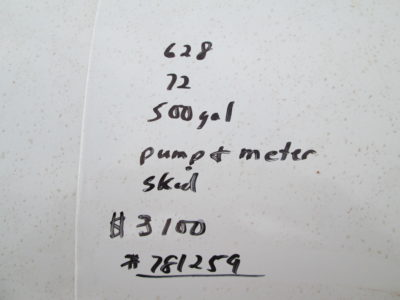 628
72
500 gal
pump & meter
skid
$3100
#781259